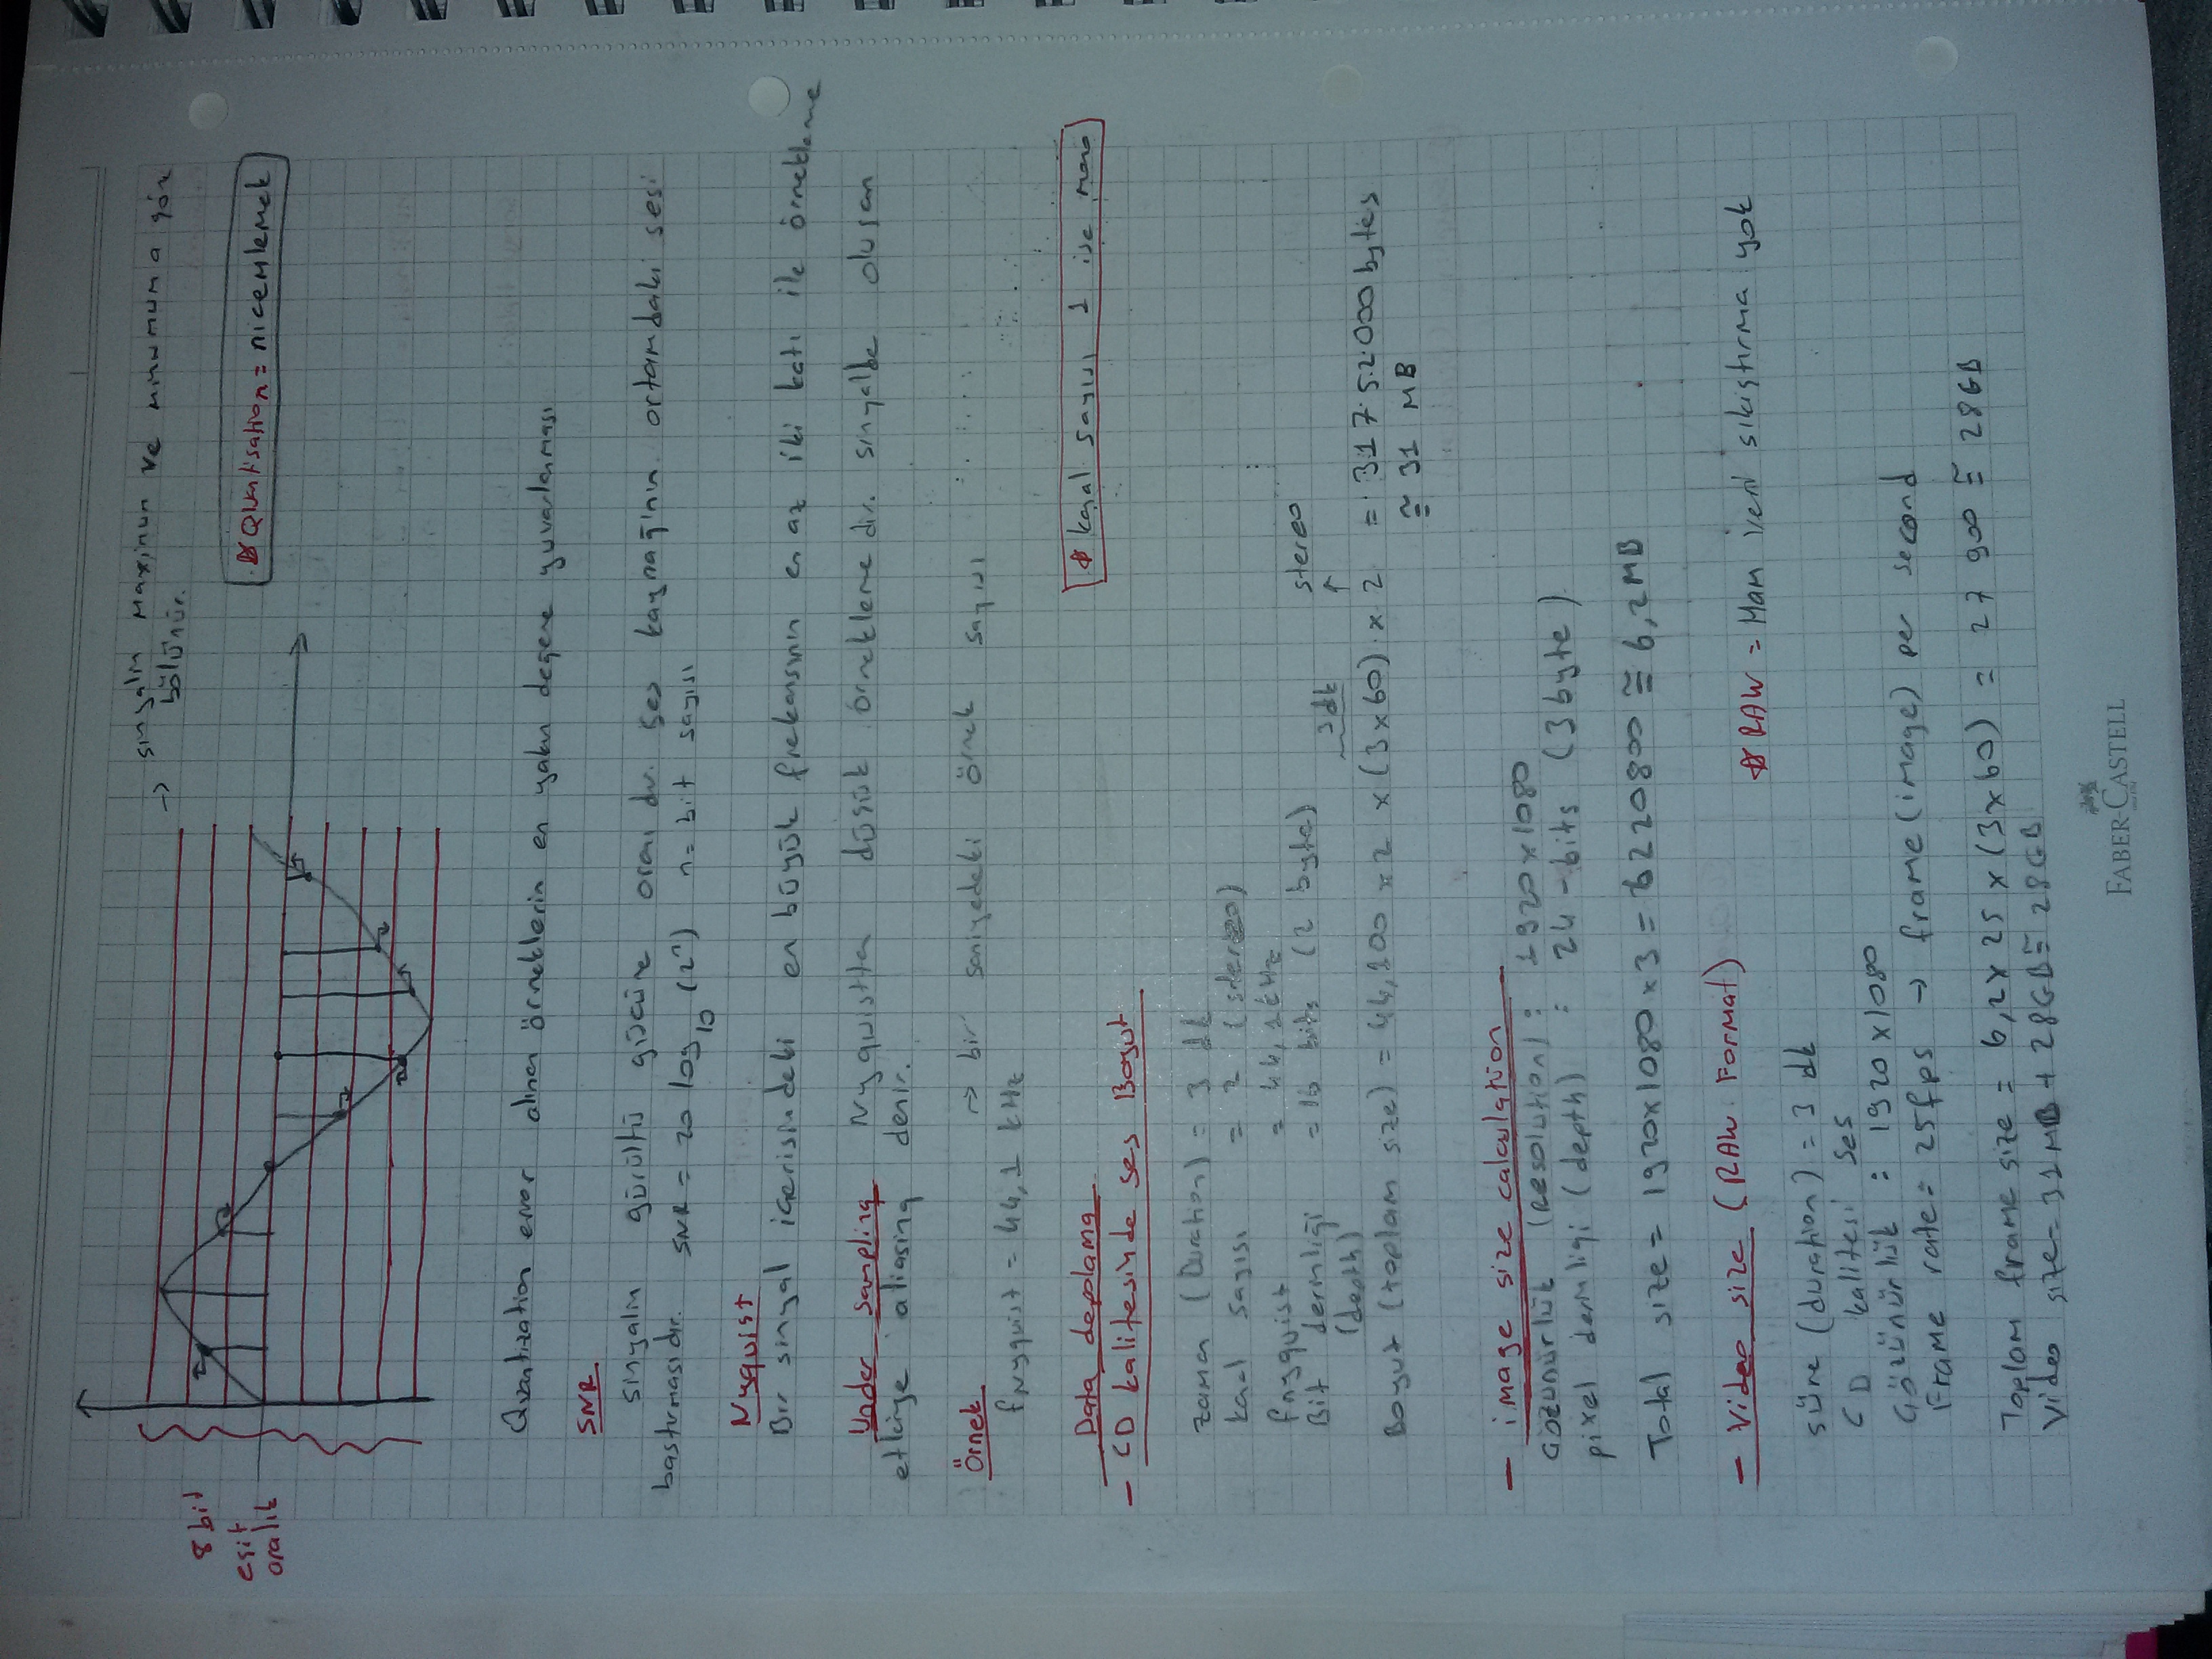 → sinyalin maximum ve minumuma göre
bölünür.
8 bit
eşit
aralık
☆ Quantisation = nicemlemek
Quantization error alınan örneklerin en yakın değere yuvarlanması
SNR
sinyalin gürültü gücüne oranıdır. Ses kaynağı'nın ortamdaki sesi
bastırmasıdır. SNR = 20 log₁₀ (2ⁿ) n = bit sayısı
Nyquist
Bir sinyal içerisindeki en büyük frekansının en az iki katı ile örnekleme
Under sampling Nyquistten düşük örneklemedir. sinyalde oluşan
etkiye aliasing denir.
Örnek → bir saniyedeki örnek sayısı
fNyquist = 44,1 kHz
Data depolama
☆ kanal sayısı 1 ise mono
- CD kalitesinde ses Boyut
zaman (Duration) = 3 dk
kanal sayısı = 2 (stereo)
fnyquist = 44,1 kHz
Bit derinliği = 16 bits (2 byte)
(depth)
3 dk stereo
↑
Boyut (toplam size) = 44,100 x 2 x (3x60) x 2 = 31752000 bytes
≅ 31 MB
- image size calculation
Gözünürlük (Resolution) : 1920x1080
pixel derinligi (depth) : 24-bits (3 byte)
Total size = 1920x1080x3 = 6220800 ≅ 6,2 MB
- Video size (RAW Format)
☆ RAW = Ham veri sıkıştırma yok
süre (duration) = 3 dk
CD kalitesi ses
Gözünürlük : 1920x1080
Frame rate = 25fps → frame (image) per second
Toplam frame size = 6,2 x 25 x (3x60) = 27 900 ≅ 28GB
Video size = 31 MB + 28GB ≅ 28GB
FABER-CASTELL